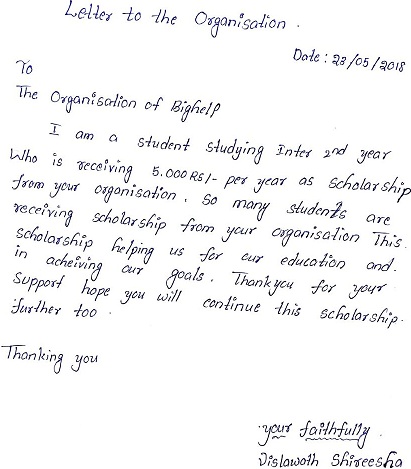 Letter to the Organisation.
Date: 23/05/2018
To
The Organisation of Bighelp
I am a student studying Inter 2nd year
Who is receiving 5.000 RS/- per year as scholarship
from your organisation. So many students are
receiving scholarship from your organisation This
scholarship helping us for our education and.
in acheiving our goals. Thankyou for your
Support hope you will continue this scholarship.
further too.
Thanking you
your faithfully.
Vislawoth Shireesha